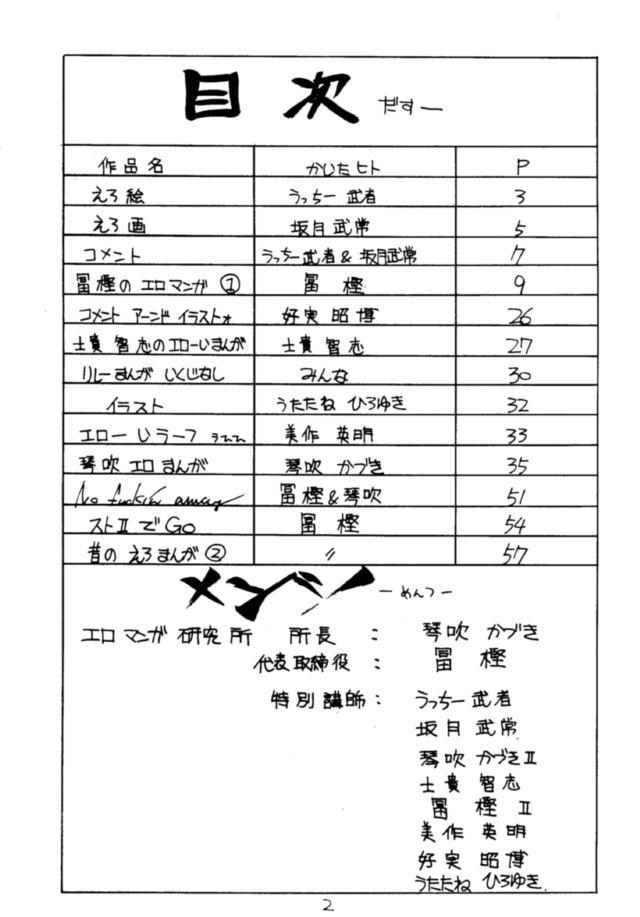 目次 だすー
作品名 かいたヒト P
えろ絵 うっちー武者 3
えろ画 坂月武常 5
コメント うっちー武者&坂月武常 7
冨樫のエロマンガ① 冨樫 9
コメントアーンドイラストォ 好実昭博 26
士貴智志のエローいまんが 士貴智志 27
リレーまんが いくじなし みんな 30
イラスト うたたねひろゆき 32
エローいラーフ 美作英明 33
琴吹エロまんが 琴吹かづき 35
No fuckin' 冨樫&琴吹 51
ストⅡでGo 冨樫 54
昔のえろまんが② 〃 57
メンツ ーめんつー
エロマンガ研究所 所長: 琴吹かづき
代表取締役: 冨樫
特別講師: うっちー武者
坂月武常
琴吹かづきⅡ
士貴智志
冨樫Ⅱ
美作英明
好実昭博
うたたねひろゆき
2